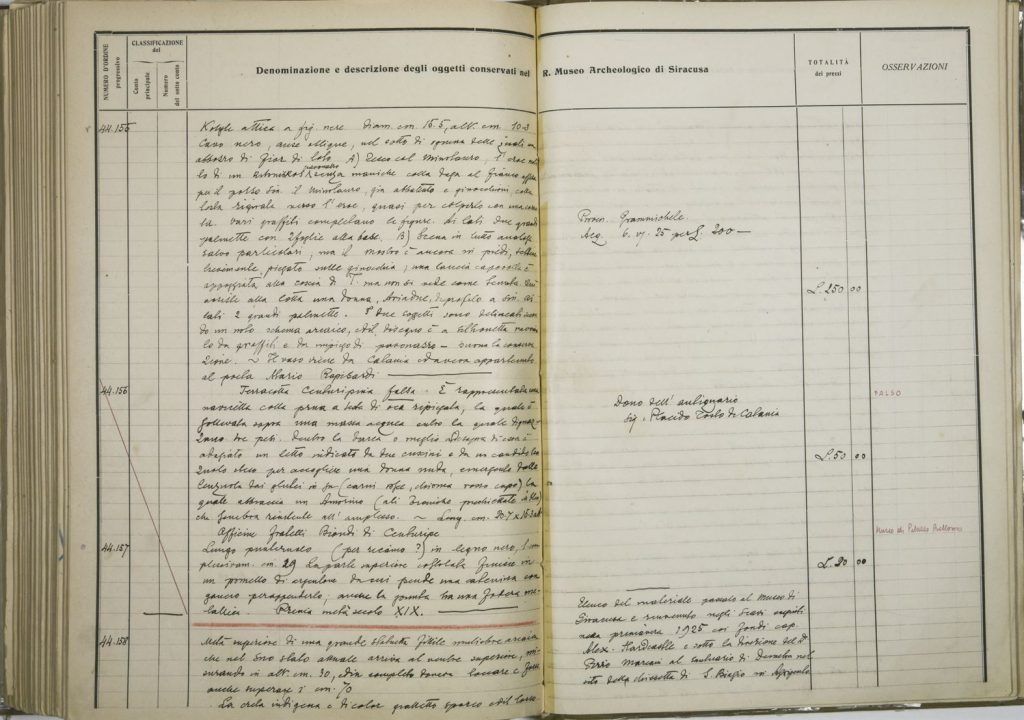 NUMERO D'ORDINE
progressivo
CLASSIFICAZIONE
del
Conto
principale
Numero
del sotto conto
Denominazione e descrizione degli oggetti conservati nel R. Museo Archeologico di Siracusa
TOTALITÀ
dei prezzi
OSSERVAZIONI
44.155
Kotyle attica a fig. nere. Diam. cm. 16.5, alt. cm. 10.3
Cavo nero, anse oblique, nel sotto di ognuna delle quali un
abbozzo di fior di loto. A) Teseo col Minotauro, l'eroe
maniche colla daga al fianco
pel polso sin. il Minotauro, già abbattuto e ginocchioni, colla
testa rigirata verso l'eroe, quasi per colpirlo con una
Vari graffiti completano le figure. Ai lati due grandi
palmette con 2 foglie alla base. B) Scena in tutto analoga
salvo particolari, ma il mostro è ancora in piedi,
lievemente piegato sulle ginocchia; una lancia capovolta è
appoggiata alla coscia di T. ma non si vede come
assiste alla lotta una donna, Ariadne, di profilo a sin. Ai
lati 2 grandi palmette. I due soggetti sono delineati
do un solo schema arcaico, ed il disegno è a silhouetta
lo da graffiti e da impiego di paonazzo — buona la conserva
zione. ~ Il vaso viene da Catania ed aveva appartenuto
al poeta Mario Rapisardi
Proven. Grammichele.
Acq. 6. VI. 25 per £. 200 —
L. 250 00
44.156
Terracotta Centuripina falsa. È rappresentata una
navicella colla prua a testa di oca ripiegata, la quale è
sollevata sopra una massa acquea entro la quale
zano tre pesci. Dentro la barca
adagiato un letto indicato da due cuscini e da un candido
per accogliere una donna nuda, emergente dalle
lenzuola dai glutei in su (carni rosee, chioma rosso capo) la
quale abbraccia un Amorino
che sembra renitente all'amplesso. ~ Lung. cm. 30.7 x 16.3 alt.
Officine fratelli Biondi di Centuripe
Dono dell'antiquario
Sig. Placido Tosto di Catania
L. 50 00
FALSO
44.157
Lungo punteruolo (per ricamo?) in legno nero,
cm. 29 La parte superiore costolata finisce in
un pometto di argento da cui pende una catenina con
gancio per appenderlo; anche la punta ha una fodera me-
tallica. Prima metà secolo XIX.
L. 20 00
Museo di Palazzo Bellomo
44.158
Metà superiore di una grande statuetta fittile muliebre arcaica
che nel suo stato attuale arriva al ventre superiore, mi-
surando in alt. cm. 30, ed in completo doveva toccare e forse
anche superare i cm. 70
La creta indigena è di color grattetto sporco ed il
Elenco del materiale passato al Museo di
Siracusa e rinvenuto negli scavi eseguiti
nella primavera 1925 coi fondi cap.
Alex. Hardcastle e sotto la direzione del Dr
Pirro Marconi al santuario di Demetra nel
sito della chiesetta di S. Biagio in Agrigento